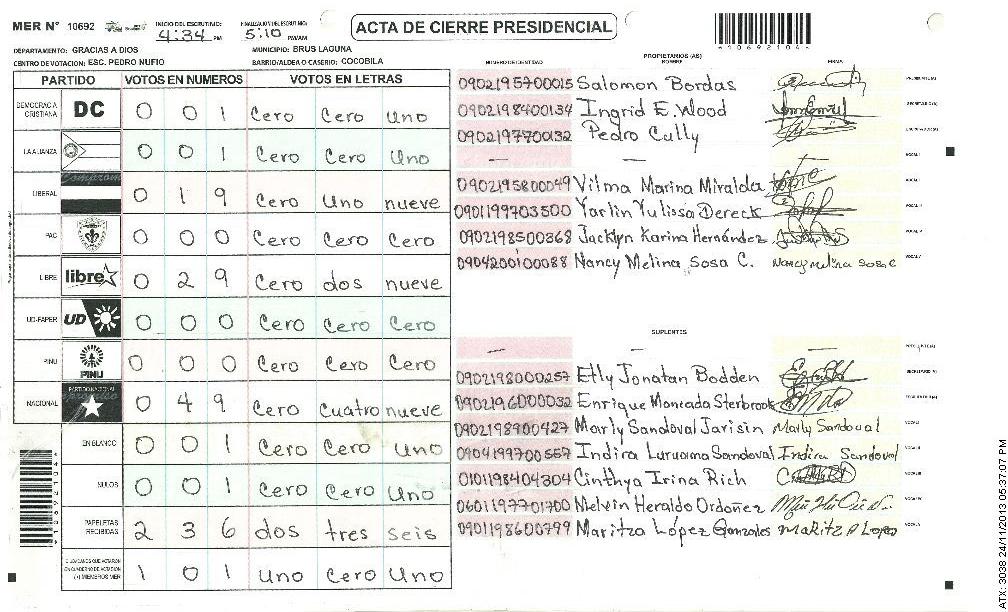 MER N° 10692
INICIO DEL ESCRUTINIO: 4:34 PM
FINALIZACION DEL ESCRUTINIO: 5:10 PM/AM
ACTA DE CIERRE PRESIDENCIAL
DEPARTAMENTO: GRACIAS A DIOS
MUNICIPIO: BRUS LAGUNA
CENTRO DE VOTACION: ESC. PEDRO NUFIO
BARRIO/ALDEA O CASERIO: COCOBILA
PARTIDO VOTOS EN NUMEROS VOTOS EN LETRAS
DEMOCRACIA CRISTIANA DC 0 0 1 Cero Cero Uno
LA ALIANZA 0 0 1 Cero Cero Uno
LIBERAL 0 1 9 Cero Uno nueve
PAC 0 0 0 Cero Cero Cero
LIBRE libre 0 2 9 Cero dos nueve
UD-FAPER UD 0 0 0 Cero Cero Cero
PINU PINU 0 0 0 Cero Cero Cero
NACIONAL PARTIDO NACIONAL 0 4 9 Cero Cuatro nueve
EN BLANCO 0 0 1 Cero Cero Uno
NULOS 0 0 1 Cero Cero Uno
PAPELETAS RECIBIDAS 2 3 6 dos tres seis
CIUDADANOS QUE VOTARON EN CUADERNO DE VOTACION (+) MIEMBROS MER 1 0 1 Uno Cero Uno
PROPIETARIOS (AS)
NUMERO DE IDENTIDAD NOMBRE FIRMA
0902195700015 Salomon Bordas
0902198400134 Ingrid E. Wood
0902197700132 Pedro Cully
— —
0902195800049 Vilma Marina Miralda
0901199703500 Yarlin Yulissa Dereck
0902198500368 Jacklyn Karina Hernández
0904200100088 Nancy Melina Sosa C. Nancy Melina Sosa C
SUPLENTES
— — —
0902198000257 Etly Jonatan Bodden
0902196000032 Enrique Moncada Sterbrook
0902198900427 Marly Sandoval Jarisin Marly Sandoval
0904199700557 Indira Luruama Sandoval Indira Sandoval
0101198404304 Cinthya Irina Rich
0601197701700 Melvin Heraldo Ordoñez
0901198600799 Maritza López Gonzales Maritz A Lopez
ATX: 3038 24/11/2013 05:37:07 PM